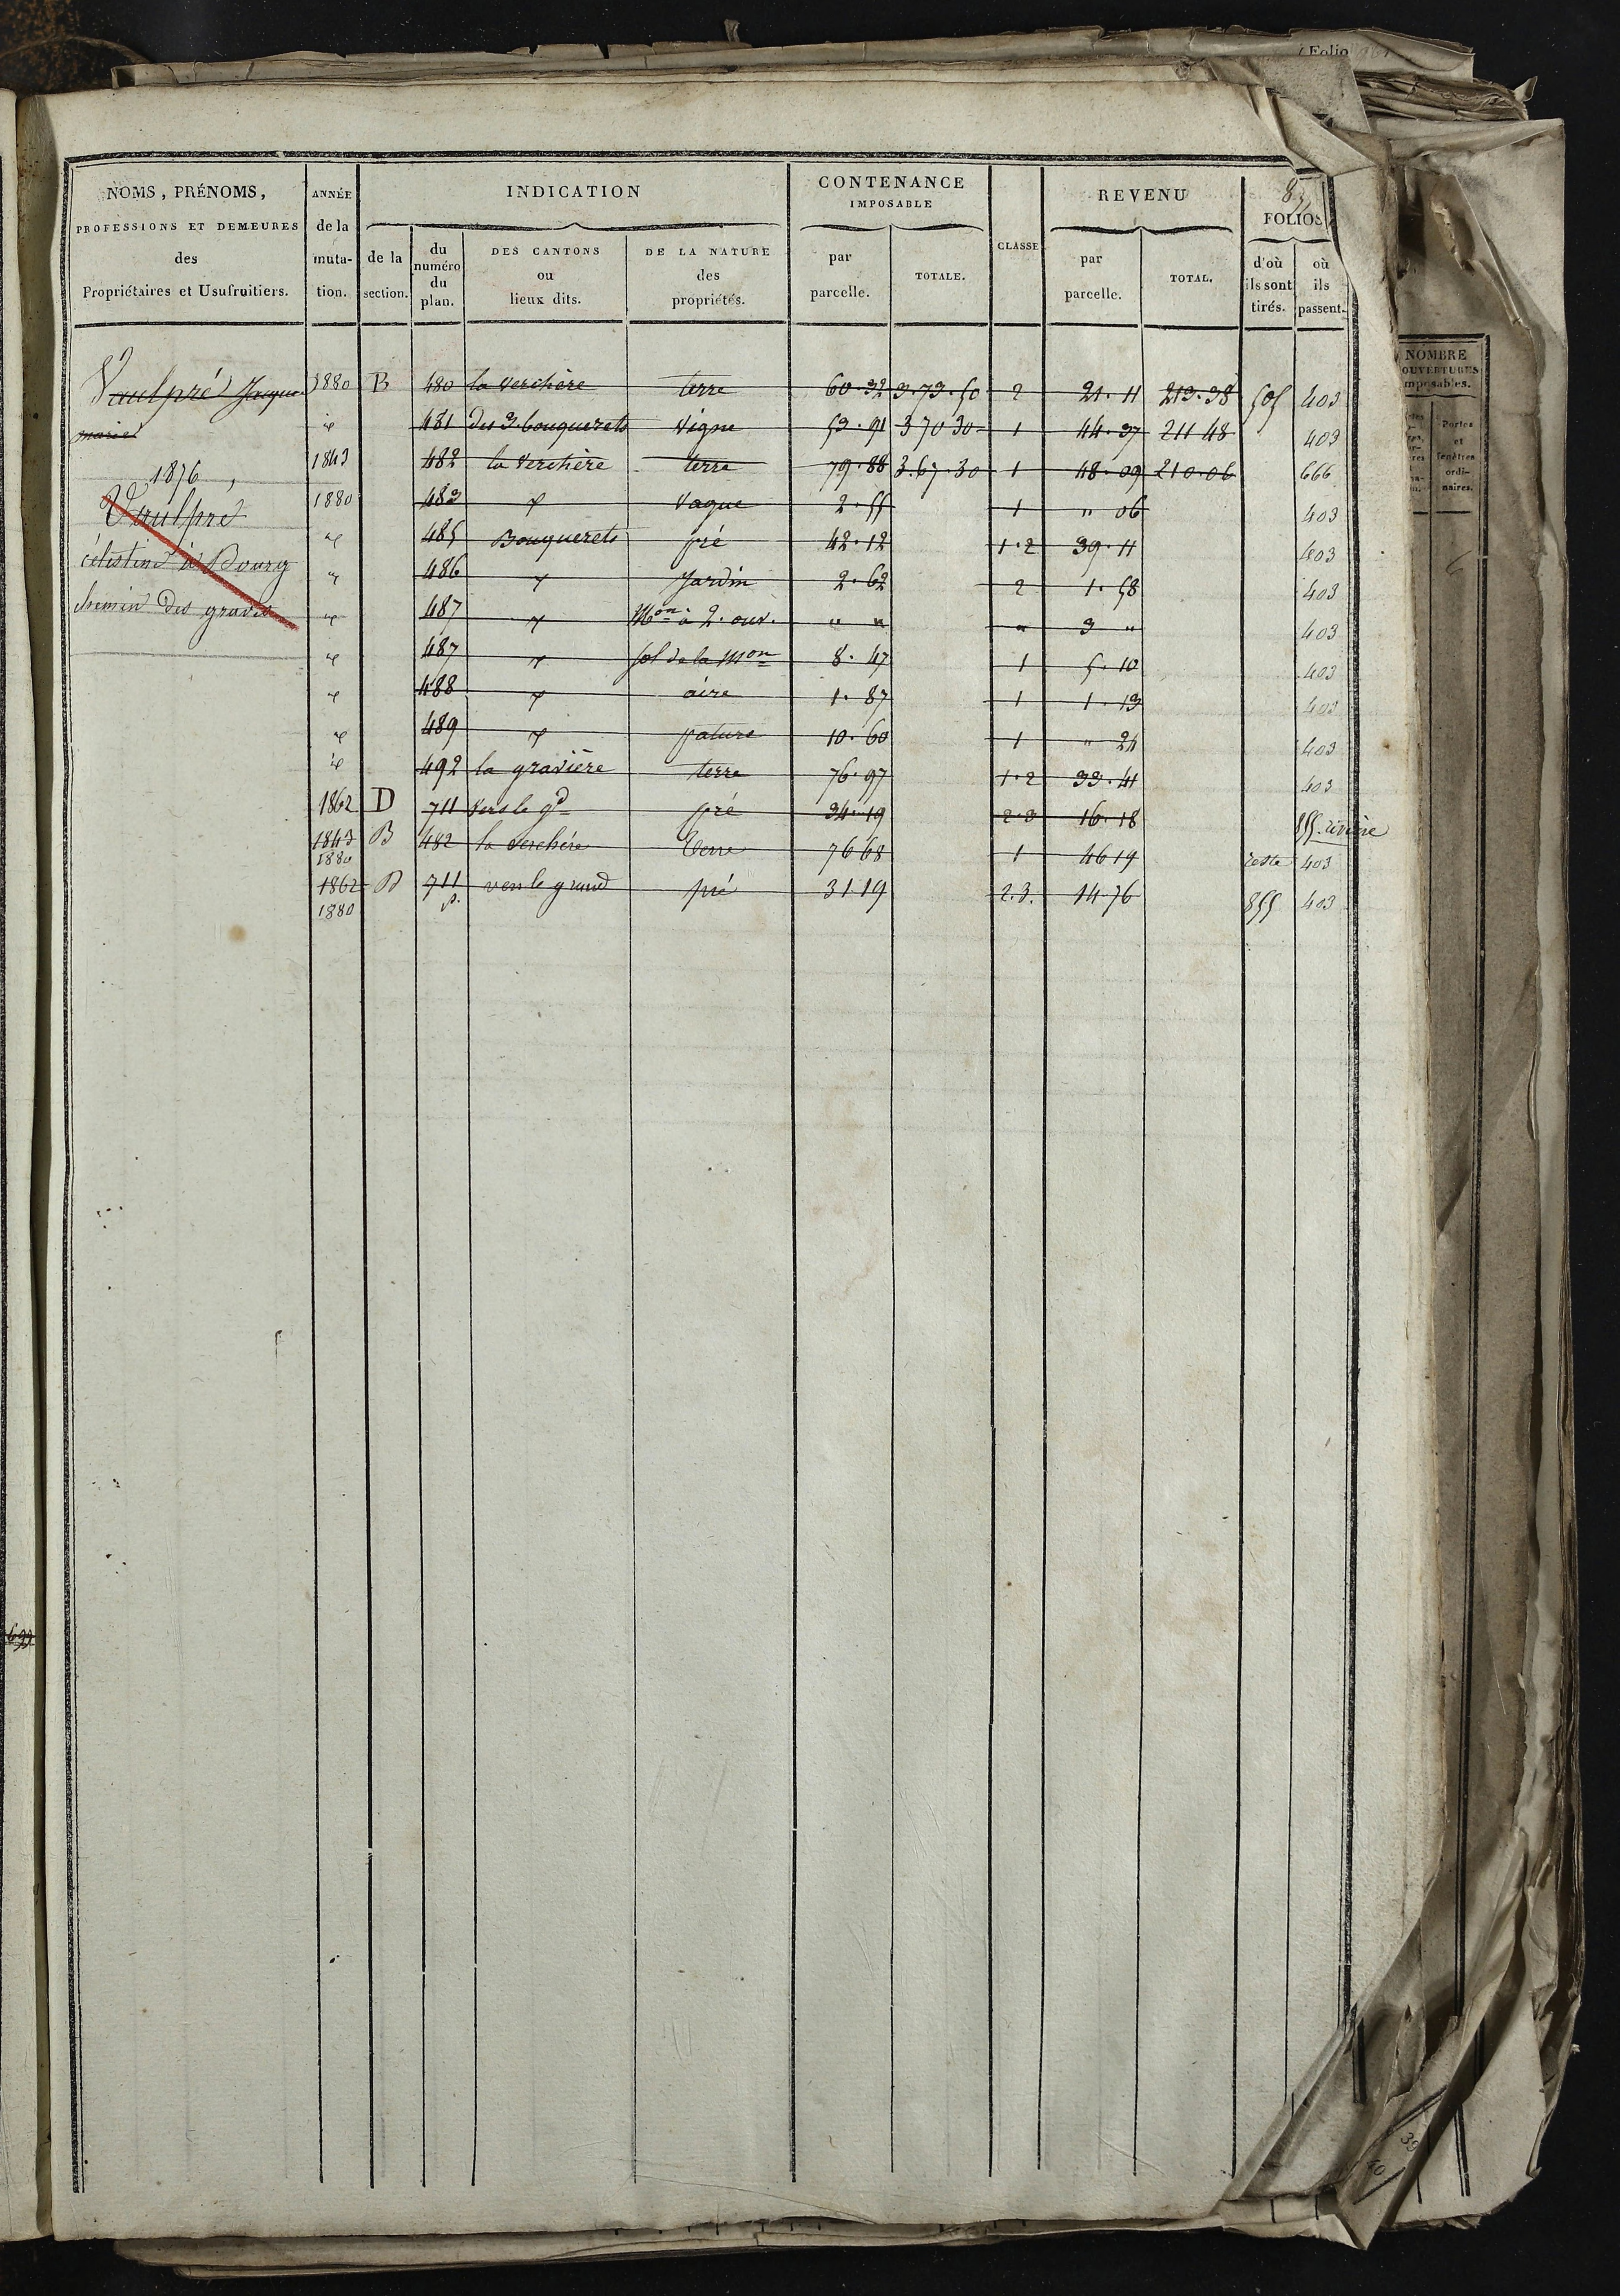 Folio
NOMS, PRÉNOMS, PROFESSIONS ET DEMEURES des Propriétaires et Usufruitiers.
ANNÉE de la muta- tion.
INDICATION
de la section.
du numéro du plan.
DES CANTONS ou lieux dits.
DE LA NATURE des propriétés.
CONTENANCE IMPOSABLE
par parcelle.
TOTALE.
CLASSE
REVENU
par parcelle.
TOTAL.
FOLIOS
d'où ils sont tirés.
où ils passent.
NOMBRE
OUVERTURES
mposables.
Portes et fenêtres ordi- naires.
Vaulpré Jacque 1880 B 480 la Verchère terre 60.32 3.73.50 2 21.11 213.38 505 403
marie id 481 des 3 bouquerets Vigne 53.91 3 70 30 1 44.37 211 48 403
1843 482 la Verchère terre 79.88 3.67.30 1 48.09 210.06 666
1876
1880 483 id Vague 2.55 1 " 06 403
Vaulpré
id 485 Bouquerets pré 42.12 1.2 39.11 403
célestin à Bourg
id 486 id Jardin 2.62 2 1.58 403
chemin des graves
id 487 id Mon à 2. ouv. " " " 3 " 403
id 487 id sol de la Mon 8.47 1 5.10 403
id 488 id aire 1.87 1 1.13 403
id 489 id pature 10.60 1 " 24 403
id 492 la gravière terre 76.97 1.2 33.41 403
1862 D 711 Vers le gd pré 34.19 2.3 16.18 855. rivière
1843 B 482 la Verchère Terre 76 68 1 46 19 reste 403
1880
1862 D 711 vers le grand pré 31 19 2.3. 14.76 855 403
1880 p.
699